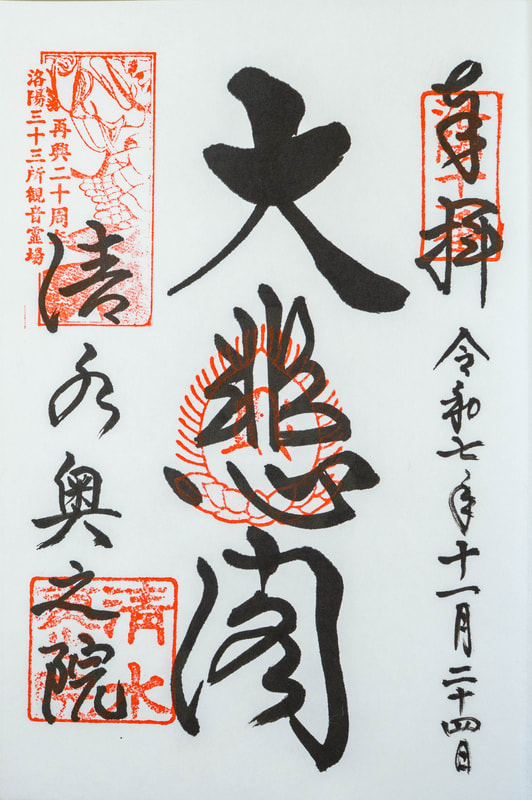 奉拝
令和七年十一月二十四日
大悲閣
清水奥之院
再興二十周
洛陽三十三所観音霊場
清水